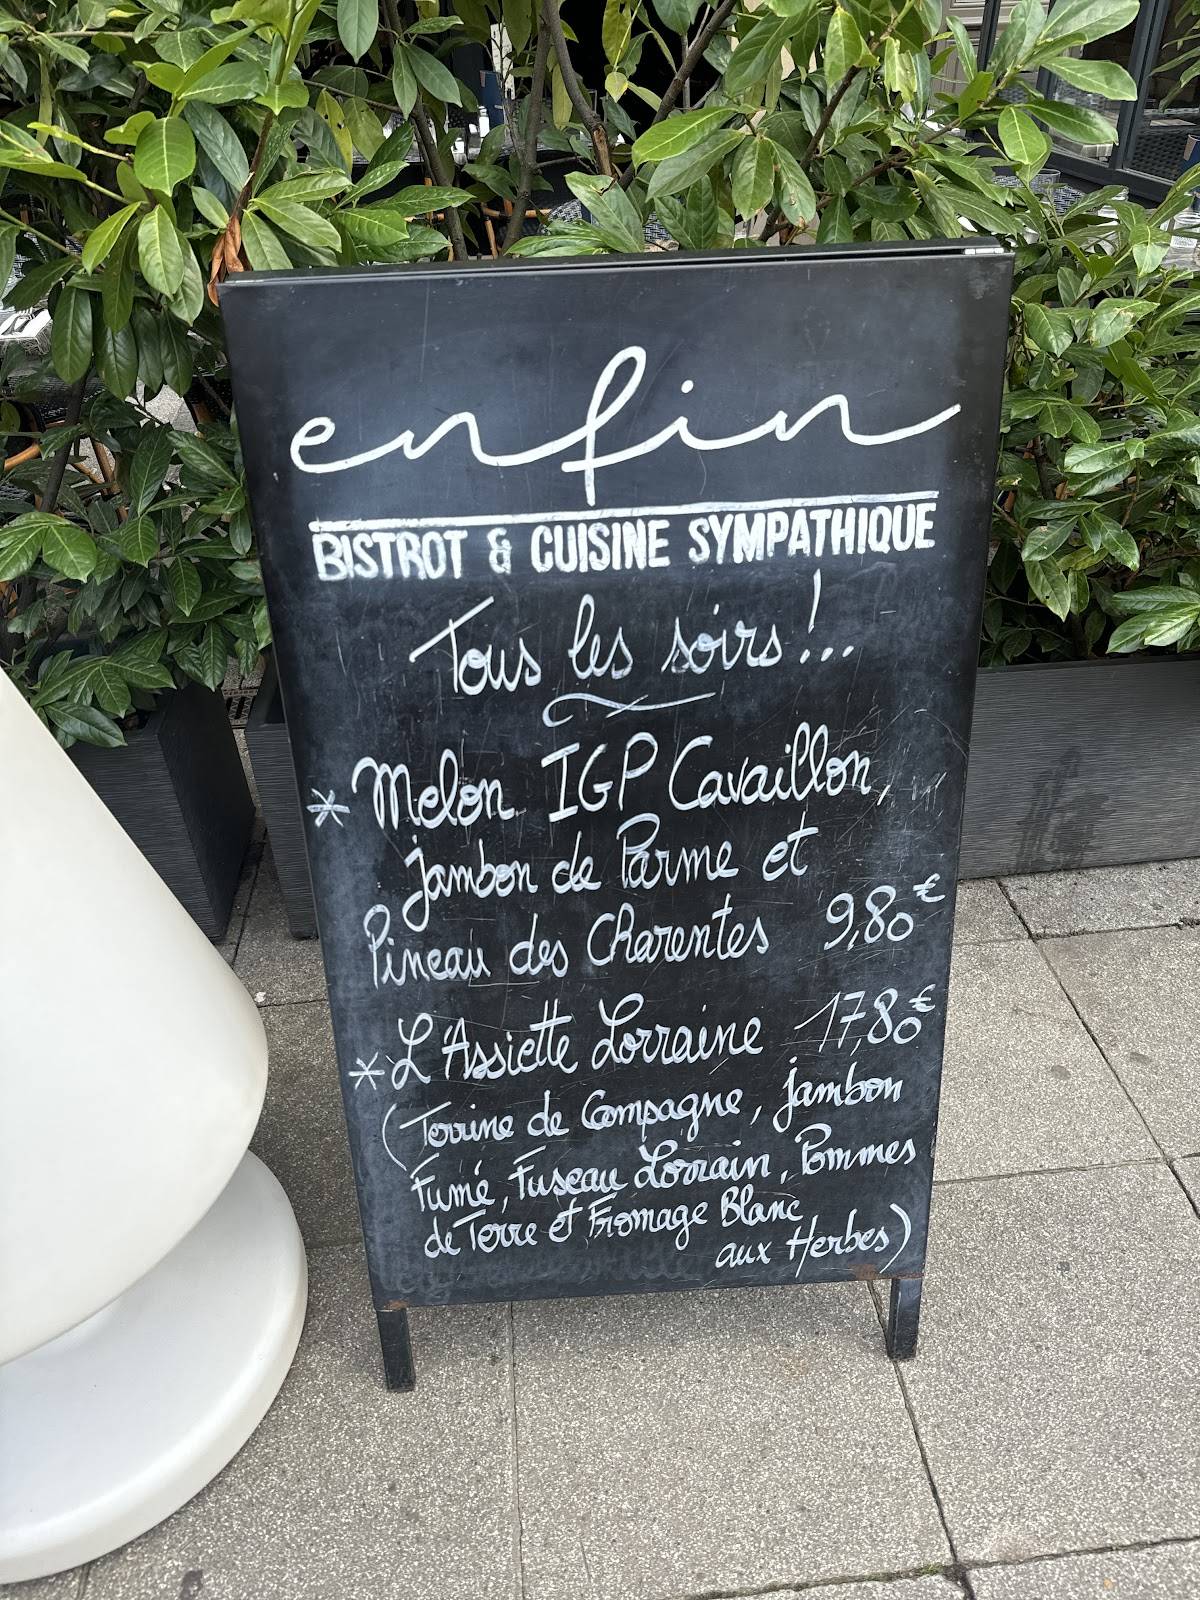 enfin
BISTROT & CUISINE SYMPATHIQUE
Tous les soirs !...
* Melon IGP Cavaillon,
jambon de Parme et
Pineau des Charentes 9,80€
* L'Assiette Lorraine 17,80€
(Terrine de Campagne, jambon
Fumé, Fuseau Lorrain, Pommes
de Terre et Fromage Blanc
aux Herbes)